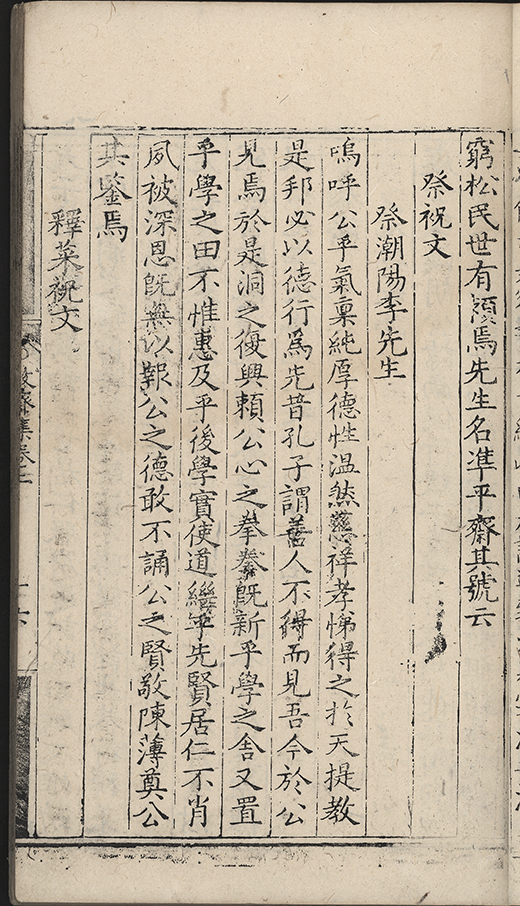 窮松民世有頌焉先生名準平齋其號云
祭祝文
祭潮陽李先生
嗚呼公乎氣稟純厚德性温然慈祥孝悌得之於天提教
是邦必以德行爲先昔孔子謂善人不得而見吾今於公
見焉於是洞之復興賴公心之拳拳旣新乎學之舍又置
乎學之田不惟惠及乎後學實使道繼乎先賢居仁不肖
夙被深恩旣無以報公之德敢不誦公之賢敬陳薄奠公
其鑒焉
釋菜祝文
敬齋集卷二